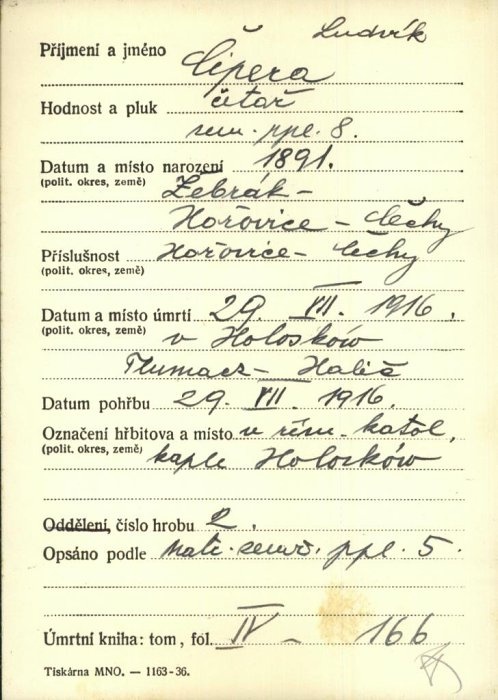 Ludvík
Příjmení a jméno Čipera
Hodnost a pluk četař
zem. ppl. 8.
Datum a místo narození 1891.
(polit. okres, země) Žebrák -
Hořovice - Čechy
Příslušnost Hořovice - Čechy
(polit. okres, země)
Datum a místo úmrtí 29. VII. 1916.
(polit. okres, země) v Holosków
Tlumacz - Halič
Datum pohřbu 29. VII. 1916.
Označení hřbitova a místo v řím. katol.
(polit. okres, země) kaple Holosków
Oddělení, číslo hrobu 2.
Opsáno podle matr. ppl. 5.
Úmrtní kniha: tom, fol. IV - 166
Tiskárna MNO. — 1163-36.